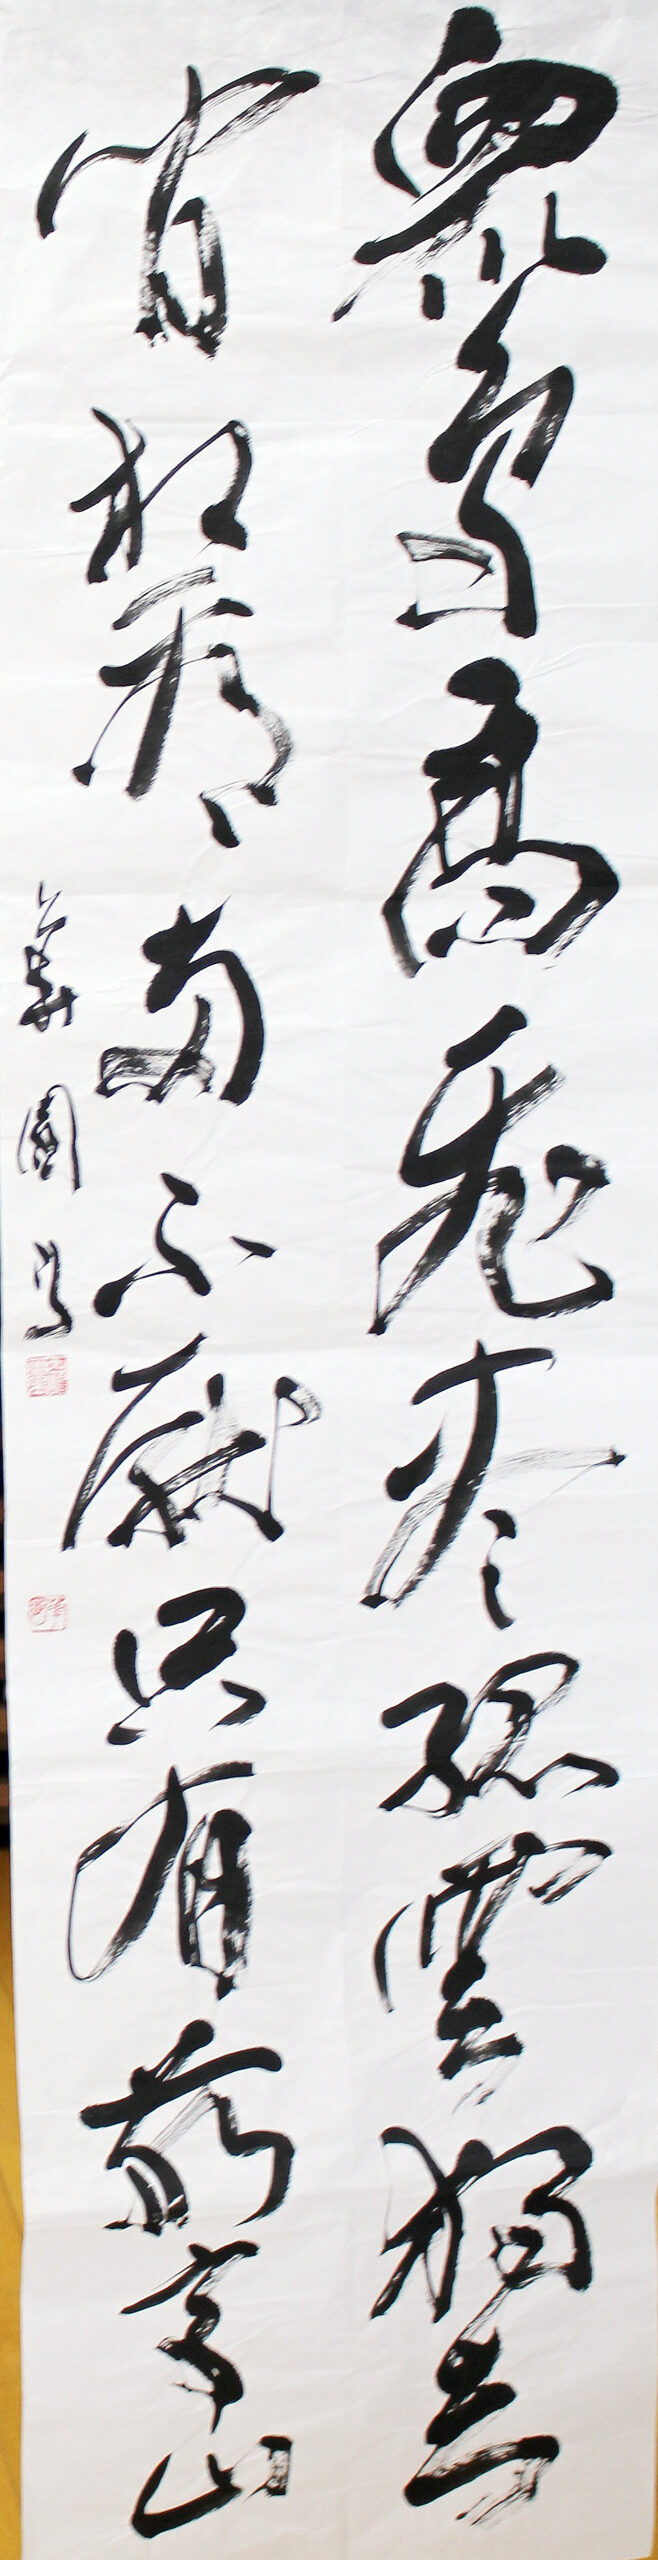 衆鳥高飛盡孤雲獨去
閒相看兩不厭只有敬亭山
書